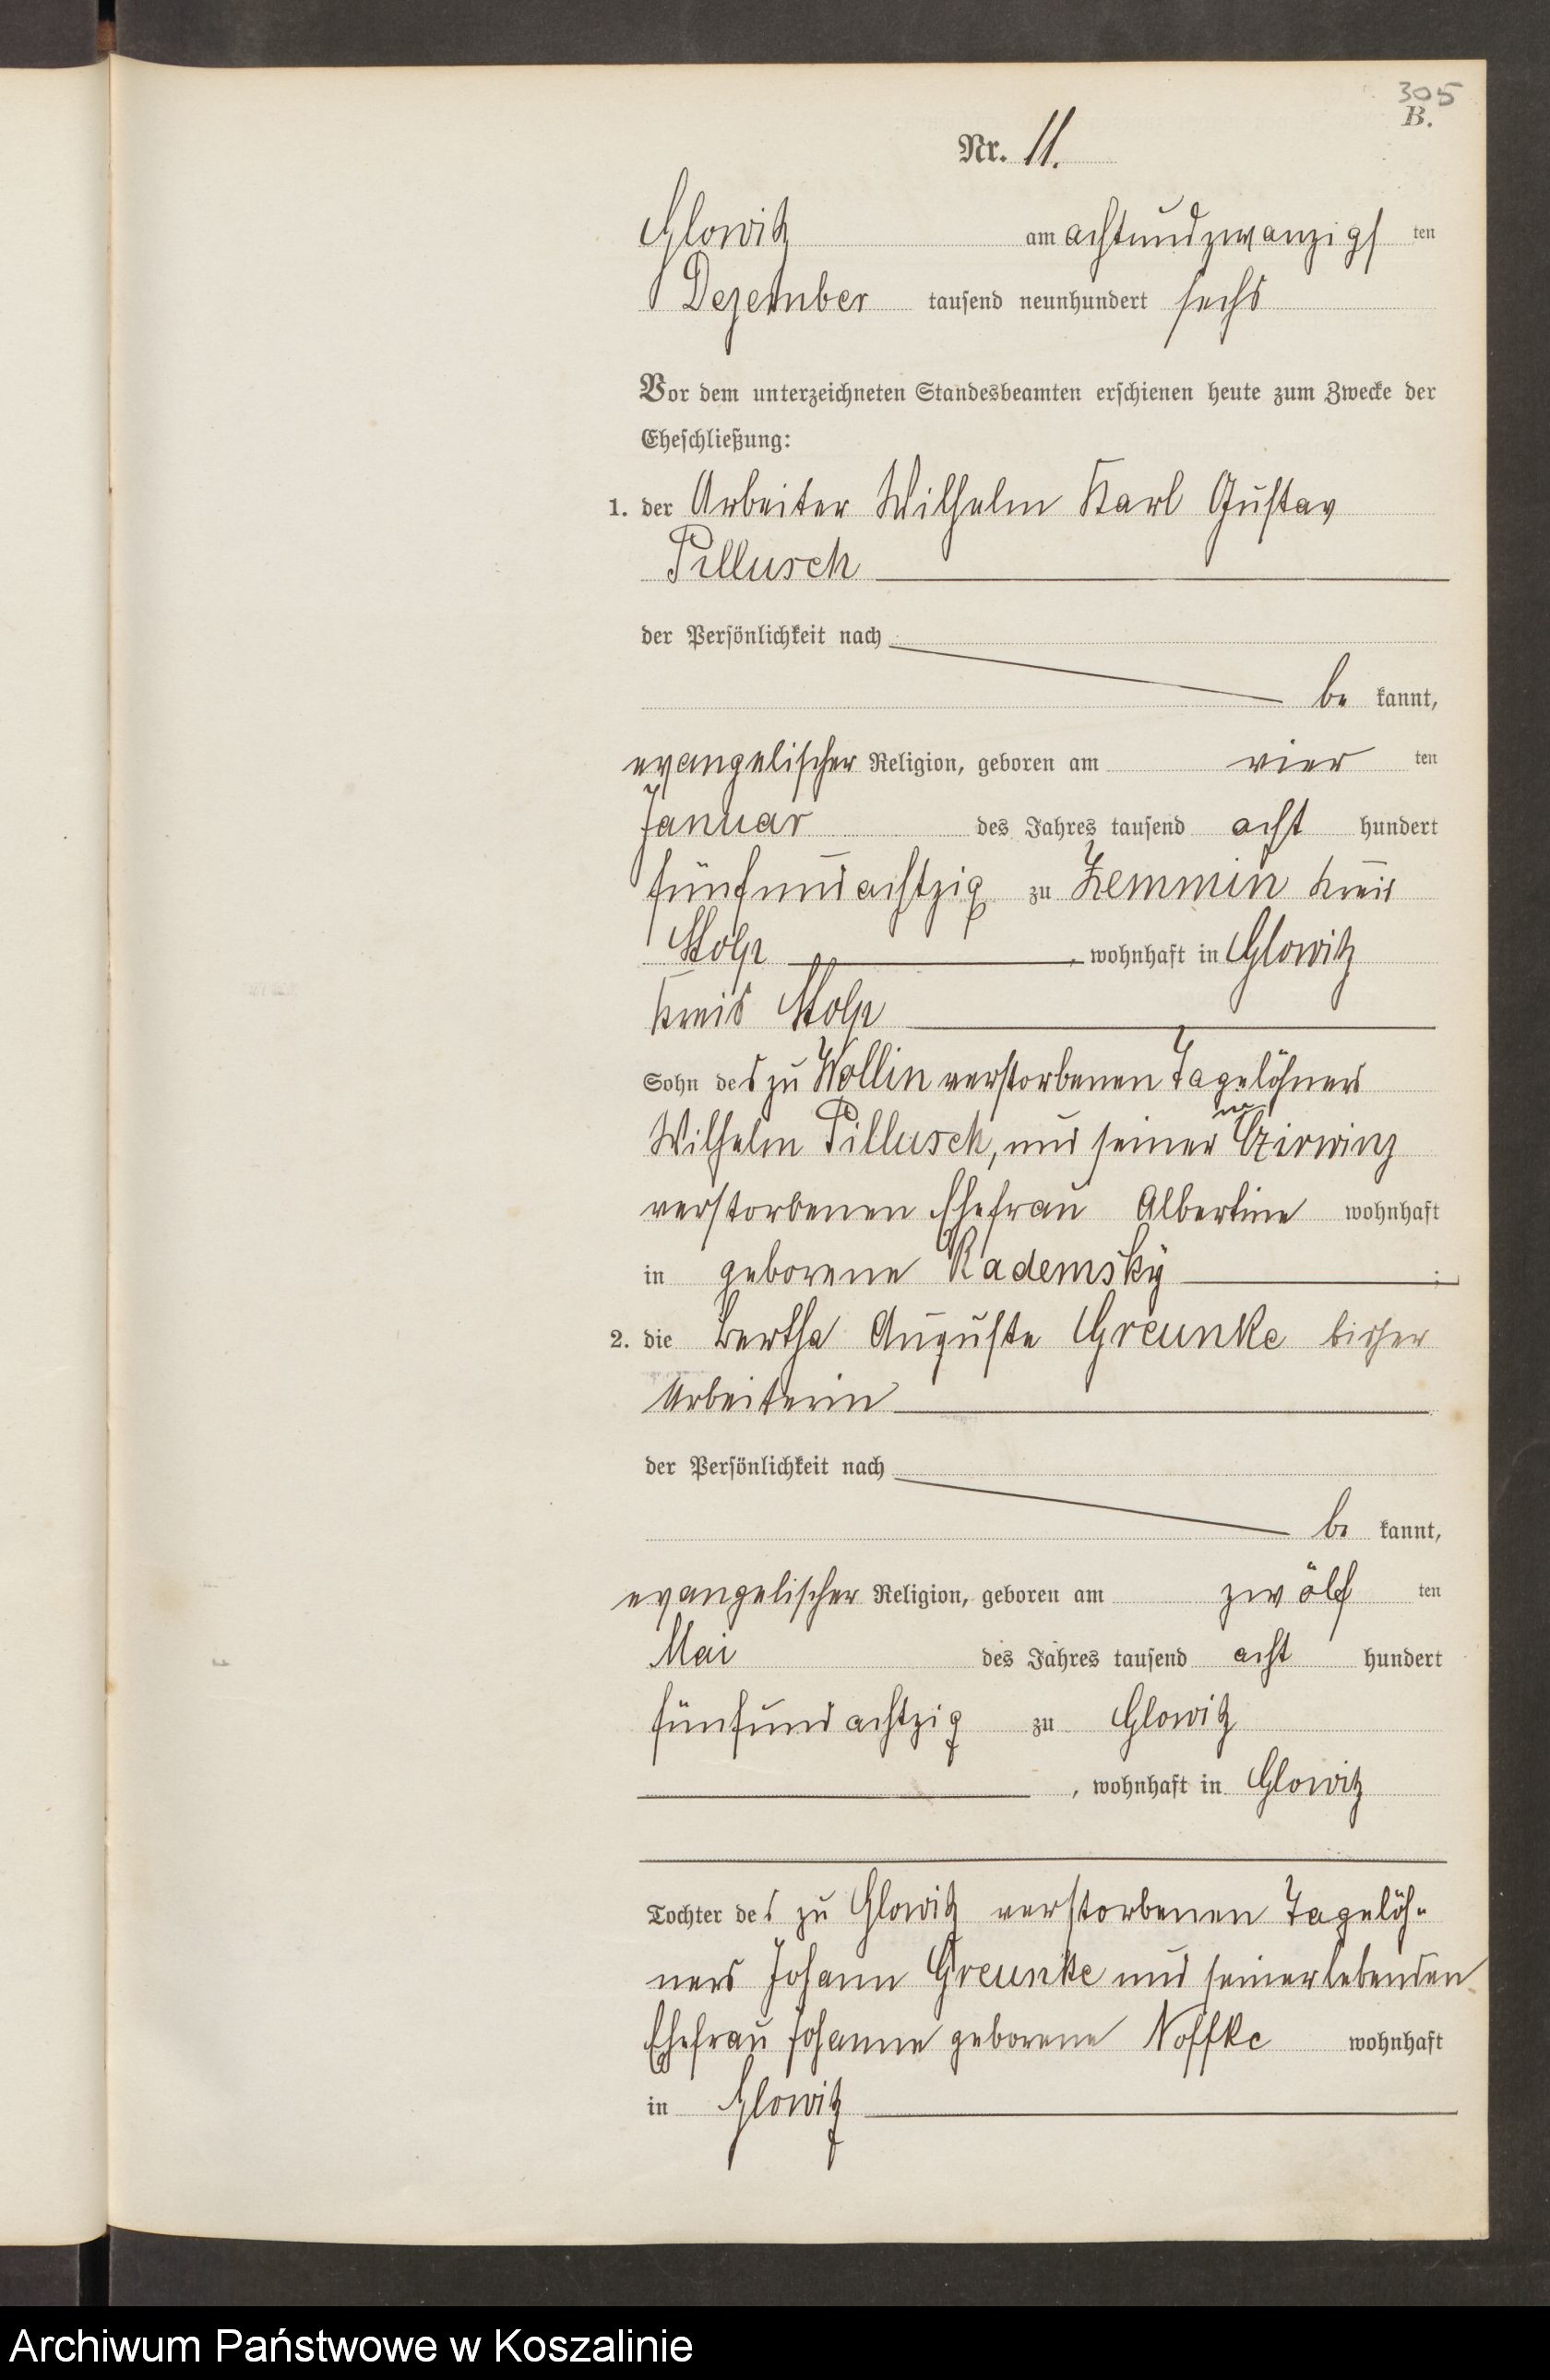 305
B.
Nr. 11.
Glowitz am achtundzwanzigs ten
Dezember tausend neunhundert sechs
Vor dem unterzeichneten Standesbeamten erschienen heute zum Zwecke der
Eheschließung:
1. der Arbeiter Wilhelm Karl Gustav
Pillusch
der Persönlichkeit nach
be kannt,
evangelischer Religion, geboren am vier ten
Januar des Jahres tausend acht hundert
fünfundachtzig zu Zemmin Kreis
Stolp, wohnhaft in Glowitz
Kreis Stolp
Sohn des zu Wollin verstorbenen Tagelöhners
Wilhelm Pillusch, und seiner
verstorbenen Ehefrau Albertine wohnhaft
in geborene Rademsky;
2. die Bertha Auguste Greunke bisher
Arbeiterin
der Persönlichkeit nach
be kannt,
evangelischer Religion, geboren am zwölf ten
Mai des Jahres tausend acht hundert
fünfundachtzig zu Glowitz
, wohnhaft in Glowitz
Tochter des zu Glowitz verstorbenen Tagelöh-
ners Johann Greunke und seiner lebenden
Ehefrau Johanne geborene Noffke wohnhaft
in Glowitz
Archiwum Państwowe w Koszalinie